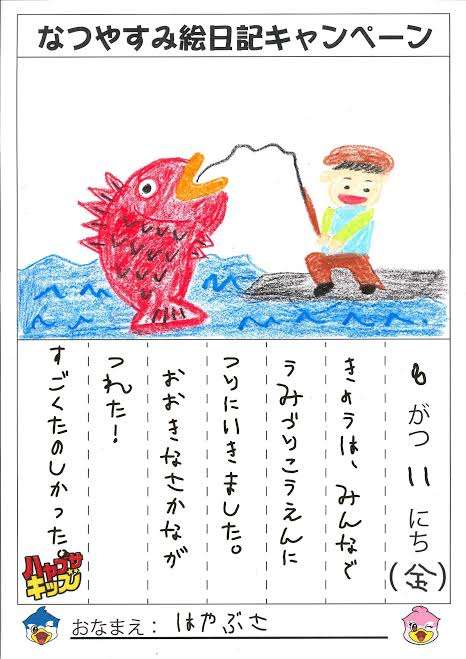 なつやすみ絵日記キャンペーン
8がつ11にち(金)
きょうは、みんなで
うみづりこうえんに
つりにいきました。
おおきなさかなが
つれた!
すごくたのしかった。
ハヤブサ
キッズ
おなまえ:はやぶさ